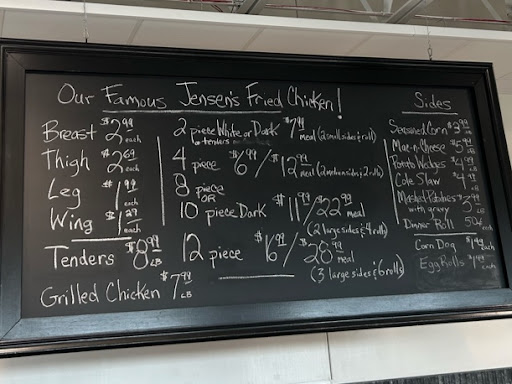 Our Famous Jensen's Fried Chicken!
Breast $2.99 each
Thigh $2.69 each
Leg $1.99 each
Wing $1.29 each
Tenders $8.99 LB
Grilled Chicken $7.99 LB
2 piece White or Dark $7.99 meal (2 small sides & roll)
or tenders
4 piece $6.99/$12.99 meal (2 medium sides & 2 rolls)
8 piece
OR
10 piece Dark $11.99/$22.99 meal
(2 large sides & 4 rolls)
12 piece $16.99/$28.99 meal
(3 large sides & 6 rolls)
Sides
Seasoned Corn
Mac-n-Cheese
Potato Wedges
Cole Slaw
Mashed Potatoes
with gravy
Dinner Roll
Corn Dog
Egg Rolls